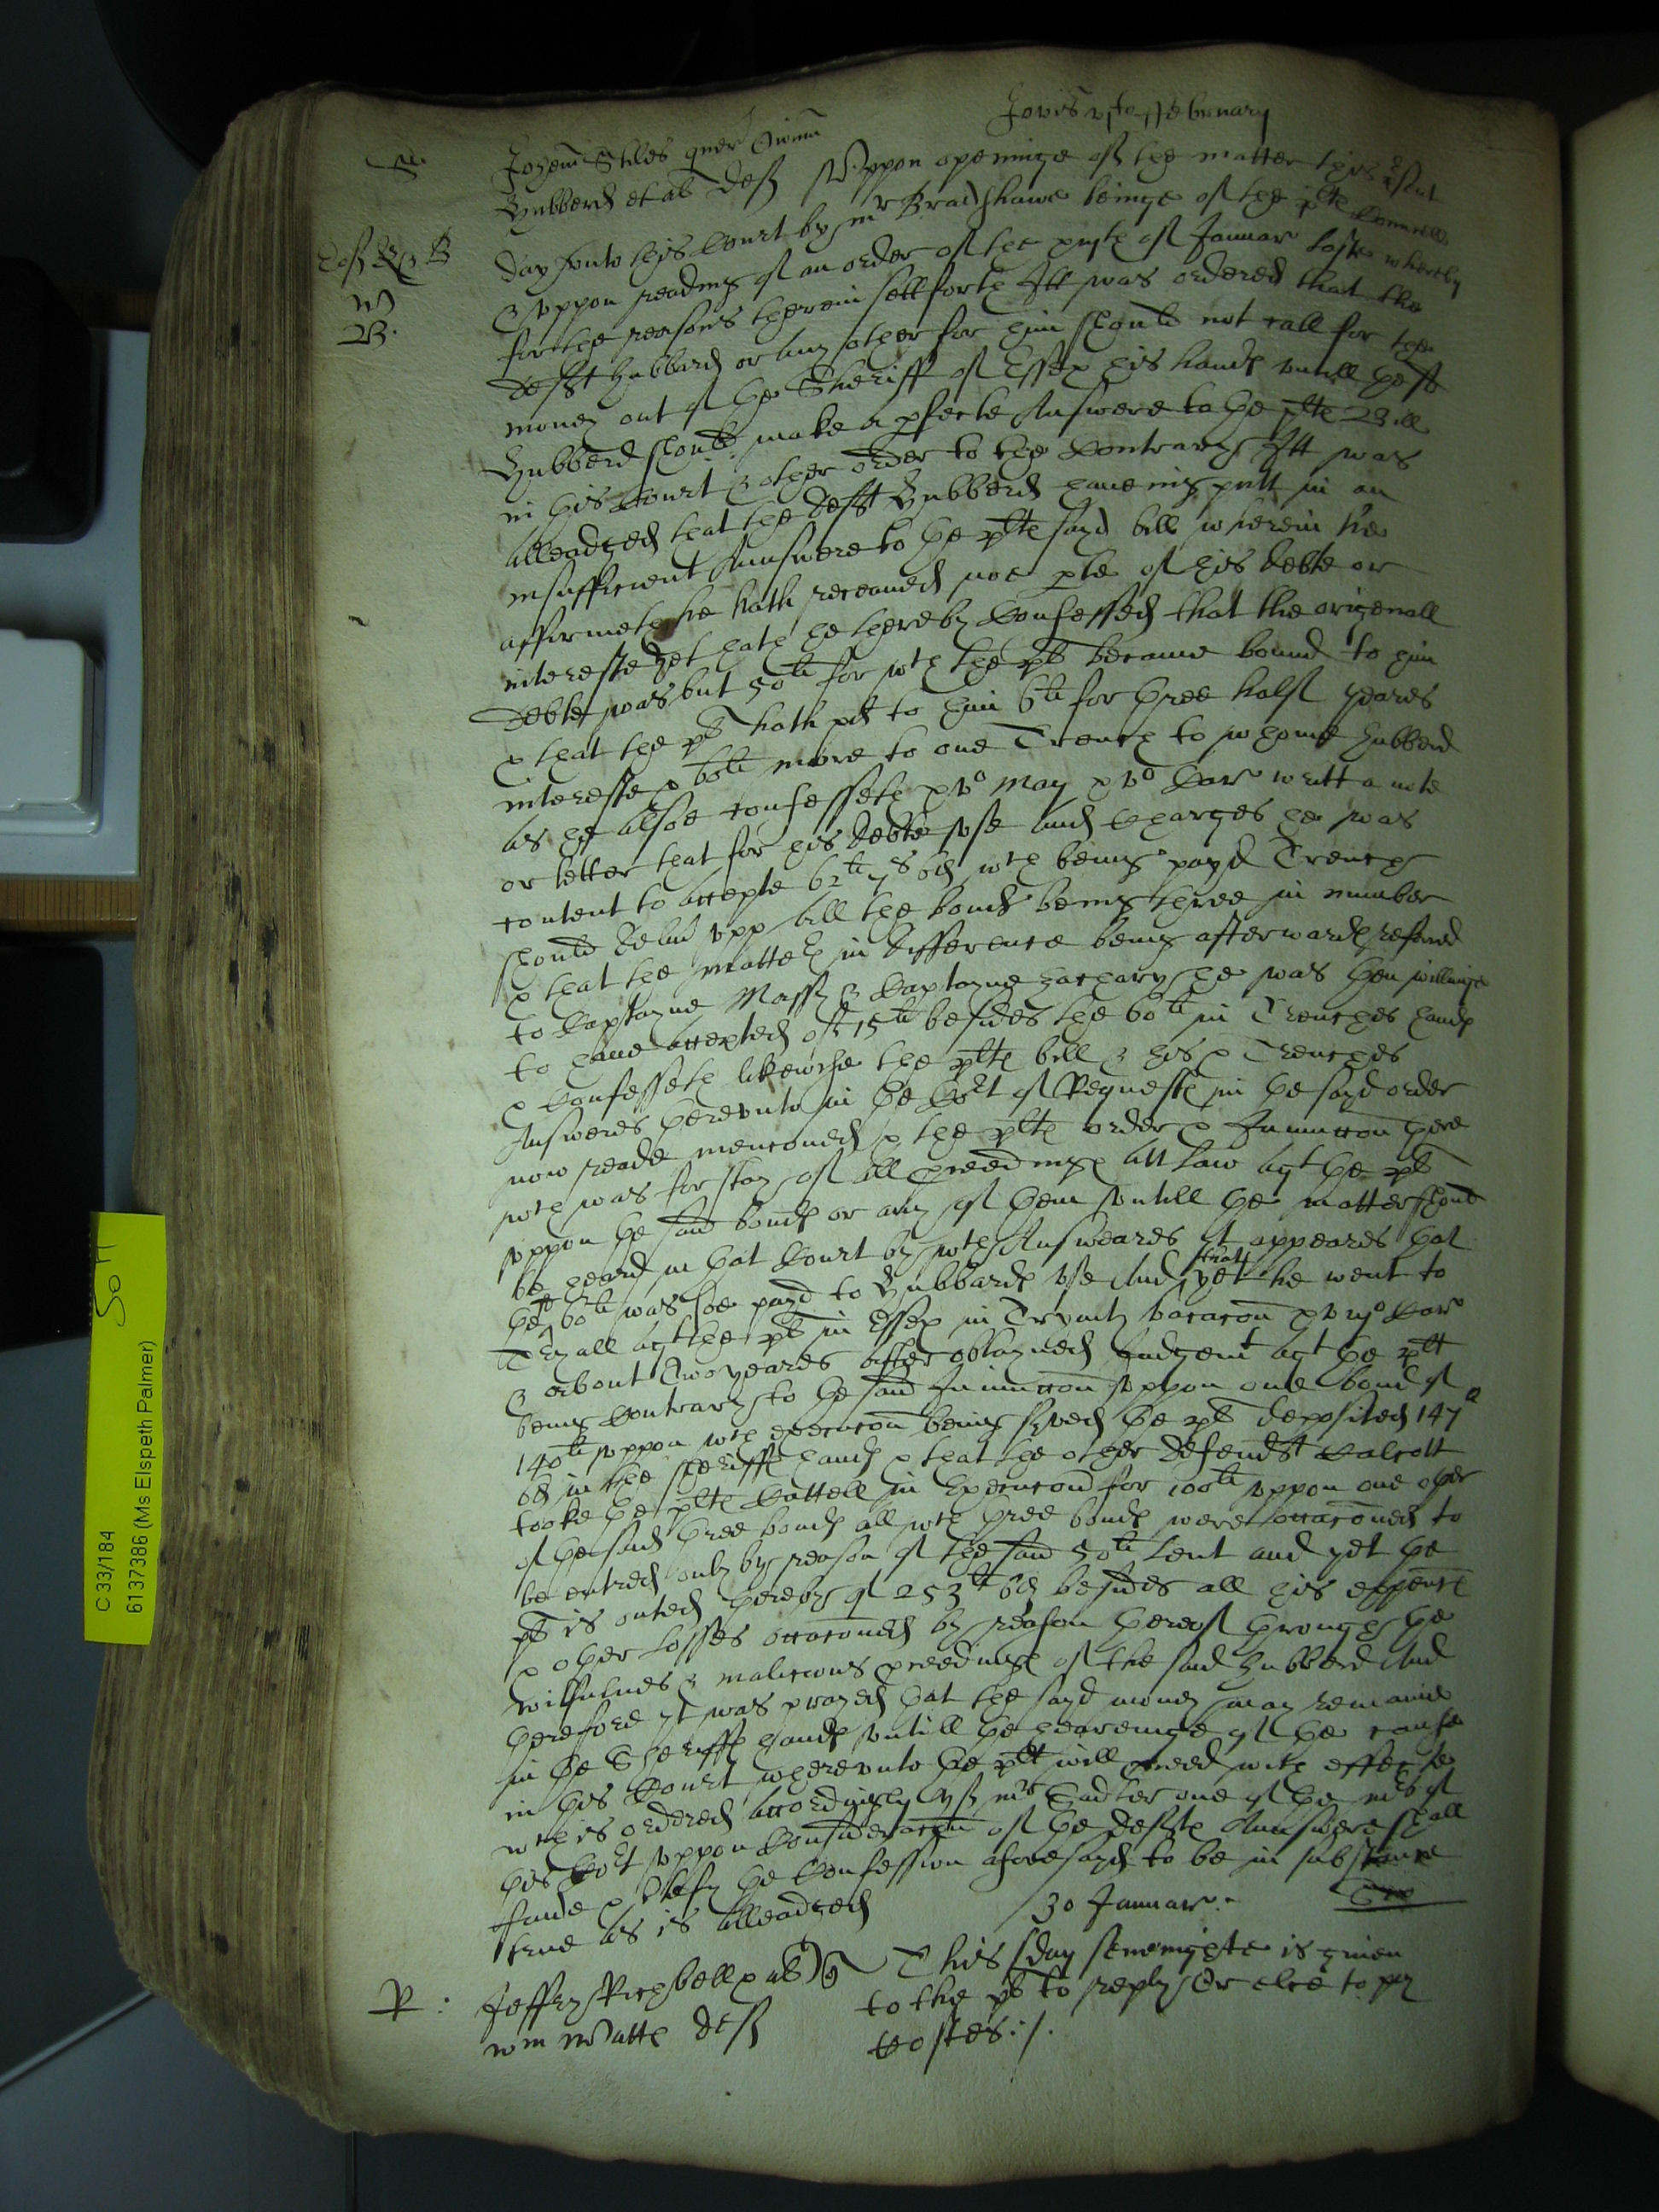 Jovis vto ffebruary
S.
Johem Stiles quer
Hubberd et al deft Uppon openinge of the matter this present
day unto this Court by mr Bradshawe beinge of the plte Councell
& uppon readinge of an order of the Januar laste whereby
for the reasons therein sett forth Itt was ordered that the
deft Hubbard or any other for him should not call for the
money out of the Sheriff of Essex his hands untill the sd
Hubberd should make a pfecte Answere to the plts Bill
in this Court & other order to the Contrary Itt was
alleadged that the deft Hubberd haveing putt in an
insufficient Aunswere to the plts sayd bill wherein he
affirmeth he hath receaved noe pte of his debte or
intereste yet hath he thereby Confessed that the origenall
debte was but 50li for wch the pl became bound to him
& that the pl hath pd to him 6li for three halfe yeares
intereste & 60li more to one Trench to whome Hubberd
as he alsoe confesseth xvo May xvo Car writt a note
or letter that for his debte use and Charges he was
content to accepte 62li 7s 6d wch being payd Trench
should deliver upp all the bonds being three in number
& that the matter in difference being afterwards referred
to Captayne Massy & Captayne Zachary he was then willinge
to have accepted of 15li besides the 60li in Trenches hands
& Confesseth likewise the plts bill & his & Trenches
Answeres thereunto in the Court of Requests in the sayd order
now reade mencioned & the plts order & Iniunccon there
wch was for stay of all proceedings att Law agt the pl
uppon the said bonds or any of them untill the matter should
be heard in that Court by wch Answeares it appeares that
the 60li was soe payd to Hubbards use And that yet he went to
Tryall agt the pl in Essex in Trynity vacacon xvijo Car
& about Two yeares after obtayned Judgemt agt the plt
being Contrary to the said Iniunccon uppon one bond of
140li uppon wch execucon being served the pl deposited 147li
6d in the sheriffs hands & that the other defendt Calcott
tooke the plts Cattell in Execucon for 100li uppon one other
of the said three bonds all wch three bonds were occaconed to
be entred only by reason of the said 50li lent and yet the
pl is outed thereby of 253li 6d besides all his expence
& other losses occaconed by reason thereof through the
wilfulnes & malicious proceedings of the said Hubberd And
therefore it was prayed that the sayd money may remaine
in the Sheriffs hands untill the heareinge of the cause
in this Court whereunto the plt will proceed with effecte
wch is ordered accordingly if mr Sadler one of the mrs of
this Court uppon Consideracon of the defts Aunswere shall
finde & Certefy the Confession aforesayd to be in substance
true as is alleadged
30 Januar.
R: Jeffery Richbell & al
This day senenighte is given
to the pl to reply Or else to pay
Costes:/.
C 33/184
6137386 (Ms Elspeth Palmer)